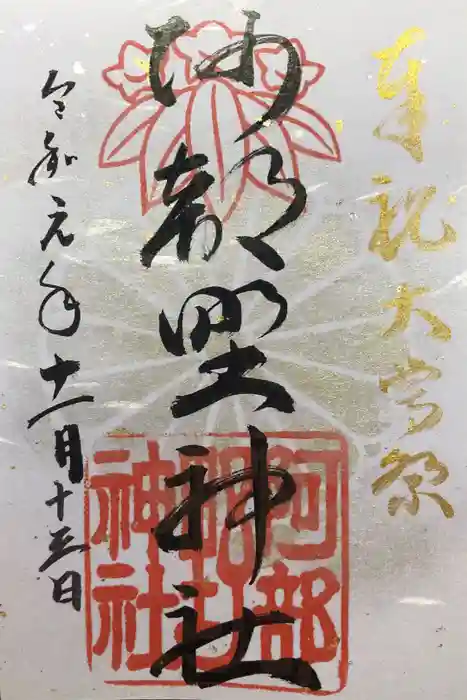 奉祝大嘗祭
阿部野神社
令和元年十一月十三日
阿部野神社